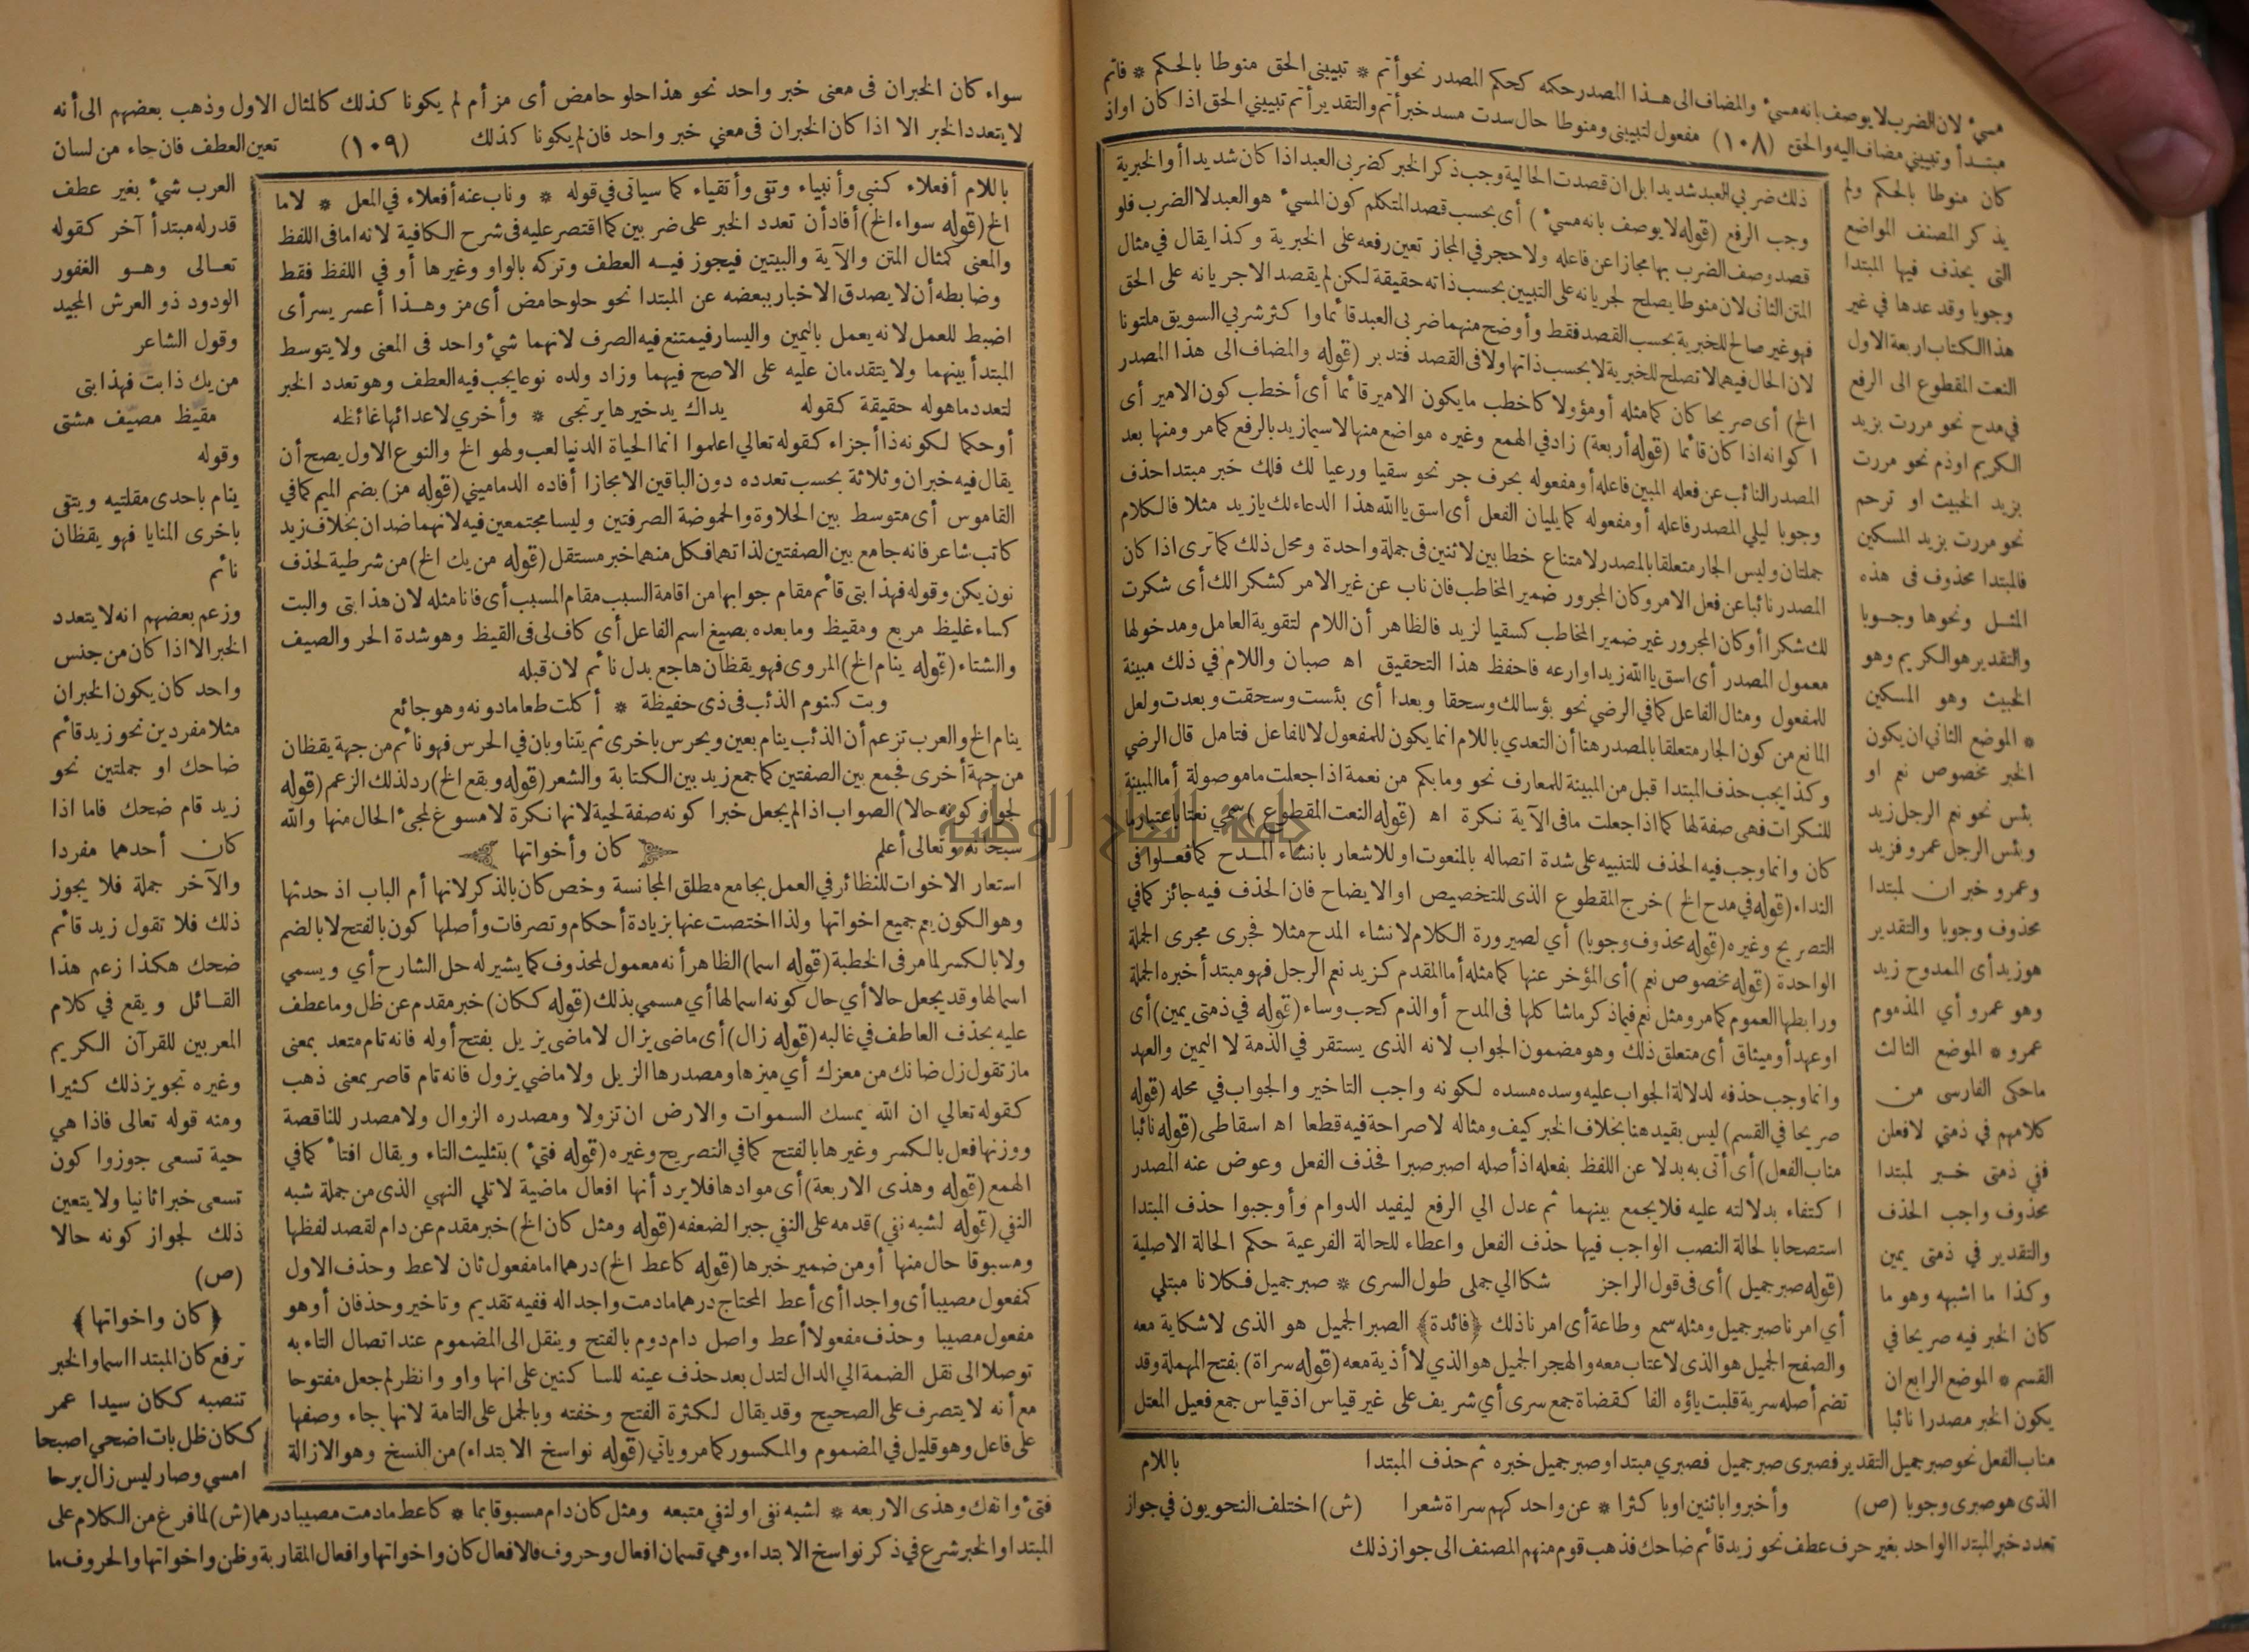 مسيء لان الضرب لا يوصف بانه مسيء والمضاف الى هذا المصدر حكمه كحكم المصدر نحو أتم * تبييني الحق منوطا بالحكم * فاتم
مبتدأ وتبييني مضاف اليه والحق (١٠٨) مفعول لتبييني ومنوطا حال سدت مسد خبر أتم والتقدير أتم تبييني الحق اذا كان اواذ
كان منوطا بالحكم ولم
يذكر المصنف المواضع
التى يحذف فيها المبتدا
وجوبا وقد عدها في غير
هذا الكتاب اربعة الاول
النعت المقطوع الى الرفع
في مدح نحو مررت بزيد
الكريم اوذم نحو مررت
بزيد الخبيث او ترحم
نحو مررت بزيد المسكين
فالمبتدا محذوف فى هذه
المثل ونحوها وجوبا
والتقدير هو الكريم وهو
الخبيث وهو المسكين
* الموضع الثاني ان يكون
الخبر مخصوص نعم او
بئس نحو نعم الرجل زيد
وبئس الرجل عمرو فزيد
وعمرو خبران لمبتدا
محذوف وجوبا والتقدير
هو زيد أى الممدوح زيد
وهو عمرو أي المذموم
عمرو * الموضع الثالث
ماحكى الفارسى من
كلامهم في ذمتي لافعلن
ففي ذمتى خبر لمبتدا
محذوف واجب الحذف
والتقدير في ذمتى يمين
وكذا ما اشبهه وهو ما
كان الخبر فيه صريحا في
القسم * الموضع الرابع ان
يكون الخبر مصدرا نائبا
ذلك ضربي العبد شديدا بل ان قصدت الحالية وجب ذكر الخبر كضربى العبد اذا كان شديدا أو الخبرية
وجب الرفع (قوله لا يوصف بانه مسيء) أى بحسب قصد المتكلم كون المسيء هو العبد لا الضرب فلو
قصد وصف الضرب بها مجازا عن فاعله ولا حجر في المجاز تعين رفعه على الخبرية وكذا يقال في مثال
المتن الثانى لان منوطا يصلح لجريانه على التبيين بحسب ذاته حقيقة لكن لم يقصد الاجريانه على الحق
فهو غير صالح للخبرية بحسب القصد فقط وأوضح منهما ضربى العبد قائما واكثر شربي السويق ملتوتا
لان الحال فيهما لا تصلح للخبرية لا بحسب ذاتها ولا فى القصد فتدبر (قوله والمضاف الى هذا المصدر
الخ) أى صريحا كان كما مثله أو مؤولا كاخطب ما يكون الامير قائما أى أخطب كون الامير أى
اكوانه اذا كان قائما (قوله أربعة) زاد في الهمع وغيره مواضع منها لاسيما زيد بالرفع كما مر ومنها بعد
المصدر النائب عن فعله المبين فاعله أو مفعوله بحرف جر نحو سقيا ورعيا لك فلك خبر مبتدا حذف
وجوبا ليلي المصدر فاعله أو مفعوله كما يليان الفعل أى اسق يا الله هذا الدعاء لك يا زيد مثلا فالكلام
جملتان وليس الجار متعلقا بالمصدر لامتناع خطابين لاثنين فى جملة واحدة ومحل ذلك كما ترى اذا كان
المصدر نائبا عن فعل الامر وكان المجرور ضمير المخاطب فان ناب عن غير الامر كشكرا لك أى شكرت
لك شكرا أو كان المجرور غير ضمير المخاطب كسقيا لزيد فالظاهر أن اللام لتقوية العامل ومدخولها
معمول المصدر أى اسق يا الله زيدا وارعه فاحفظ هذا التحقيق اه صبان واللام في ذلك مبينة
للمفعول ومثال الفاعل كما في الرضي نحو بؤسا لك وسحقا وبعدا أى بئست وسحقت وبعدت ولعل
المانع من كون الجار متعلقا بالمصدر هنا أن التعدي باللام انما يكون للمفعول لا للفاعل فتامل قال الرضي
وكذا يجب حذف المبتدا قبل من المبينة للمعارف نحو وما بكم من نعمة اذا جعلت ما موصولة أما المبينة
للنكرات فهى صفة لها كما اذا جعلت ما فى الآية نكرة اه (قوله النعت المقطوع) سمي نعتا باعتبار ما
كان وانما وجب فيه الحذف للتنبيه على شدة اتصاله بالمنعوت او للاشعار بانشاء المدح كما فعلوا فى
النداء (قوله في مدح الخ) خرج المقطوع الذى للتخصيص او الايضاح فان الحذف فيه جائز كما في
التصريح وغيره (قوله محذوف وجوبا) أي لصيرورة الكلام لانشاء المدح مثلا فجرى مجرى الجملة
الواحدة (قوله مخصوص نعم) أى المؤخر عنها كما مثله أما المقدم كزيد نعم الرجل فهو مبتدأ خبره الجملة
ورابطها العموم كما مر ومثل نعم فيما ذكر ماشا كلها فى المدح أو الذم كحب وساء (قوله في ذمتى يمين) أى
او عهد أو ميثاق أى متعلق ذلك وهو مضمون الجواب لانه الذى يستقر في الذمة لا اليمين والعهد
وانما وجب حذفه لدلالة الجواب عليه وسده مسده لكونه واجب التاخير والجواب في محله (قوله
صريحا في القسم) ليس بقيد هنا بخلاف الخبر كيف ومثاله لا صراحة فيه قطعا اه اسقاطى (قوله نائبا
مناب الفعل) أى أتى به بدلا عن اللفظ بفعله اذ أصله اصبر صبرا فحذف الفعل وعوض عنه المصدر
اكتفاء بدلالته عليه فلا يجمع بينهما ثم عدل الي الرفع ليفيد الدوام وأوجبوا حذف المبتدا
استصحابا لحالة النصب الواجب فيها حذف الفعل واعطاء للحالة الفرعية حكم الحالة الاصلية
(قوله صبر جميل) أى فى قول الراجز شكا الي جملى طول السرى * صبر جميل فكلانا مبتلي
أي امرنا صبر جميل ومثله سمع وطاعة أى امرنا ذلك ﴿فائدة﴾ الصبر الجميل هو الذى لا شكاية معه
والصفح الجميل هو الذى لا عتاب معه والهجر الجميل هو الذي لا أذية معه (قوله سراة) بفتح المهملة وقد
تضم أصله سرية قلبت ياؤه الفا كقضاة جمع سرى أي شريف على غير قياس اذ قياس جمع فعيل المعتل
مناب الفعل نحو صبر جميل التقدير فصبرى صبر جميل فصبري مبتدا وصبر جميل خبره ثم حذف المبتدا باللام
الذى هو صبرى وجوبا (ص) وأخبروا باثنين اوبا كثرا * عن واحد كهم سراة شعرا (ش) اختلف النحويون في جواز
تعدد خبر المبتدا الواحد بغير حرف عطف نحو زيد قائم ضاحك فذهب قوم منهم المصنف الى جواز ذلك
سواء كان الخبران فى معنى خبر واحد نحو هذا حلو حامض أى مز أم لم يكونا كذلك كالمثال الاول وذهب بعضهم الى أنه
لا يتعدد الخبر الا اذا كان الخبران فى معني خبر واحد فان لم يكونا كذلك (١٠٩) تعين العطف فان جاء من لسان
العرب شيء بغير عطف
قدر له مبتدأ آخر كقوله
تعالى وهو الغفور
الودود ذو العرش المجيد
وقول الشاعر
من يك ذا بت فهذا بتى
مقيظ مصيف مشتى
وقوله
ينام باحدى مقلتيه ويتقى
باخرى المنايا فهو يقظان
نائم
وزعم بعضهم انه لا يتعدد
الخبر الا اذا كان من جنس
واحد كان يكون الخبران
مثلا مفردين نحو زيد قائم
ضاحك او جملتين نحو
زيد قام ضحك فاما اذا
كان أحدهما مفردا
والآخر جملة فلا يجوز
ذلك فلا تقول زيد قائم
ضحك هكذا زعم هذا
القائل ويقع في كلام
المعربين للقرآن الكريم
وغيره تجويز ذلك كثيرا
ومنه قوله تعالى فاذا هي
حية تسعى جوزوا كون
تسعى خبرا ثانيا ولا يتعين
ذلك لجواز كونه حالا
(ص)
﴿كان واخواتها﴾
ترفع كان المبتدا اسما والخبر
تنصبه ككان سيدا عمر
ككان ظل بات اضحي اصبحا
امسي وصار ليس زال برحا
باللام أفعلاء كنبي وأنبياء وتقى وأتقياء كما سياتى في قوله * وناب عنه أفعلاء في المعل * لاما
الخ (قوله سواء الخ) أفاد أن تعدد الخبر على ضربين كما اقتصر عليه فى شرح الكافية لانه اما فى اللفظ
والمعنى كمثال المتن والآية والبيتين فيجوز فيه العطف وتركه بالواو وغيرها أو في اللفظ فقط
وضابطه أن لا يصدق الاخبار ببعضه عن المبتدا نحو حلو حامض أى مز وهذا أعسر يسر أى
اضبط للعمل لانه يعمل باليمين واليسار فيمتنع فيه الصرف لانهما شيء واحد فى المعنى ولا يتوسط
المبتدأ بينهما ولا يتقدمان عليه على الاصح فيهما وزاد ولده نوعا يجب فيه العطف وهو تعدد الخبر
لتعدد ما هو له حقيقة كقوله يداك يد خيرها يرتجى * وأخري لاعدائها غائظه
أو حكما لكونه ذا أجزاء كقوله تعالي اعلموا انما الحياة الدنيا لعب ولهو الخ والنوع الاول يصح أن
يقال فيه خبران وثلاثة بحسب تعدده دون الباقين الا مجازا أفاده الدماميني (قوله مز) بضم الميم كما في
القاموس أى متوسط بين الحلاوة والحموضة الصرفتين وليسا مجتمعين فيه لانهما ضدان بخلاف زيد
كاتب شاعر فانه جامع بين الصفتين لذاتهما فكل منهما خبر مستقل (قوله من يك الخ) من شرطية لحذف
نون يكن وقوله فهذا بتى قائم مقام جوابها من اقامة السبب مقام المسبب أى فانا مثله لان هذا بتى والبت
كساء غليظ مربع ومقيظ وما بعده بصيغ اسم الفاعل أى كاف لى فى القيظ وهو شدة الحر والصيف
والشتاء (قوله ينام الخ) المروى فهو يقظان هاجع بدل نائم لان قبله
وبت كنوم الذئب فى ذى حفيظة * أكلت طعاما دونه وهو جائع
ينام الخ والعرب تزعم أن الذئب ينام بعين ويحرس باخرى ثم يتناوبان في الحرس فهو نائم من جهة يقظان
من جهة أخرى فجمع بين الصفتين كما جمع زيد بين الكتابة والشعر (قوله ويقع الخ) رد لذلك الزعم (قوله
لجواز كونه حالا) الصواب اذا لم يجعل خبرا كونه صفة لحية لانها نكرة لا مسوغ لمجيء الحال منها والله
سبحانه وتعالى أعلم كان وأخواتها
استعار الاخوات للنظائر في العمل بجامع مطلق المجانسة وخص كان بالذكر لانها أم الباب اذ حدثها
وهو الكون يعم جميع اخواتها ولذا اختصت عنها بزيادة أحكام وتصرفات وأصلها كون بالفتح لا بالضم
ولا بالكسر لما مر فى الخطبة (قوله اسما) الظاهر أنه معمول لمحذوف كما يشير له حل الشارح أي ويسمي
اسما لها وقد يجعل حالا أي حال كونه اسما لها أي مسمي بذلك (قوله ككان) خبر مقدم عن ظل وما عطف
عليه بحذف العاطف في غالبه (قوله زال) أى ماضى يزال لا ماضى يزيل بفتح أوله فانه تام متعد بمعنى
ماز تقول زل ضانك من معزك أي ميزها ومصدرها الزيل ولا ماضي يزول فانه تام قاصر بمعنى ذهب
كقوله تعالي ان الله يمسك السموات والارض ان تزولا ومصدره الزوال ولا مصدر للناقصة
ووزنها فعل بالكسر وغيرها بالفتح كما في التصريح وغيره (قوله فتيء) بتثليث التاء ويقال افتأ كما في
الهمع (قوله وهذى الاربعة) أى موادها فلا يرد أنها افعال ماضية لا تلي النهي الذى من جملة شبه
النفي (قوله لشبه نفي) قدمه على النفي جبرا لضعفه (قوله ومثل كان الخ) خبر مقدم عن دام لقصد لفظها
ومسبوقا حال منها أو من ضمير خبرها (قوله كاعط الخ) درهما اما مفعول ثان لاعط وحذف الاول
كمفعول مصيبا أى واجدا أى أعط المحتاج درهما مادمت واجدا له ففيه تقديم وتاخير وحذفان أو هو
مفعول مصيبا وحذف مفعولا أعط واصل دام دوم بالفتح وينقل الى المضموم عند اتصال التاء به
توصلا الى نقل الضمة الي الدال لتدل بعد حذف عينه للساكنين على انها واو وانظر لم جعل مفتوحا
مع أنه لا يتصرف على الصحيح وقد يقال لكثرة الفتح وخفته وبالحمل على التامة لانها جاء وصفها
على فاعل وهو قليل في المضموم والمكسور كما مر وياتي (قوله نواسخ الابتداء) من النسخ وهو الازالة
فتئ وانفك وهذى الاربعه * لشبه نفى او لنفي متبعه ومثل كان دام مسبوقا بما * كاعط مادمت مصيبا درهما (ش) لما فرغ من الكلام على
المبتدا والخبر شرع في ذكر نواسخ الابتداء وهي قسمان افعال وحروف فالافعال كان واخواتها وافعال المقاربة وظن واخواتها والحروف ما
جامعة النجاح الوطنية